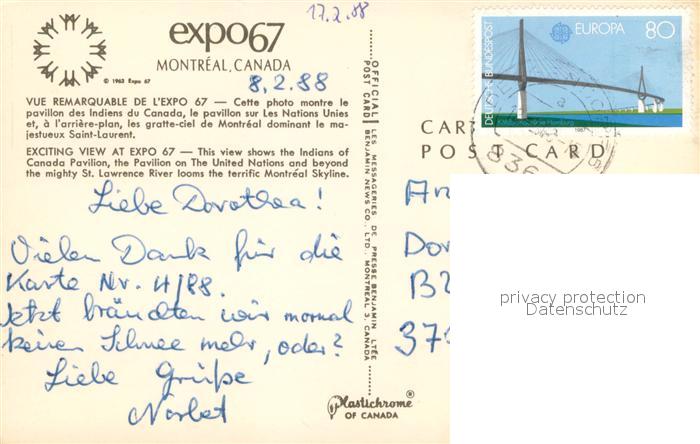 17.2.88
expo67
MONTRÉAL, CANADA
© 1963 Expo 67
8.2.88
VUE REMARQUABLE DE L'EXPO 67 — Cette photo montre le
pavillon des Indiens du Canada, le pavillon sur Les Nations Unies
et, à l'arrière-plan, les gratte-ciel de Montréal dominant le ma-
jestueux Saint-Laurent.
EXCITING VIEW AT EXPO 67 — This view shows the Indians of
Canada Pavilion, the Pavilion on The United Nations and beyond
the mighty St. Lawrence River looms the terrific Montréal Skyline.
Liebe Dorothea!
Vielen Dank für die
Karte Nr. 4/88.
Jetzt bräuchten wir mormal
keinen Schnee mehr, oder?
Liebe Grüße
Norbet
Plastichrome®
OF CANADA
OFFICIAL
POST CARD
LES MESSAGERIES DE PRESSE BENJAMIN LTÉE
BENJAMIN NEWS CO., LTD., MONTREAL 3, CANADA
DEUTSCHE BUNDESPOST
EUROPA 80
1987
836
CART
POST CARD
An
Dor
B2
37
privacy protection
Datenschutz